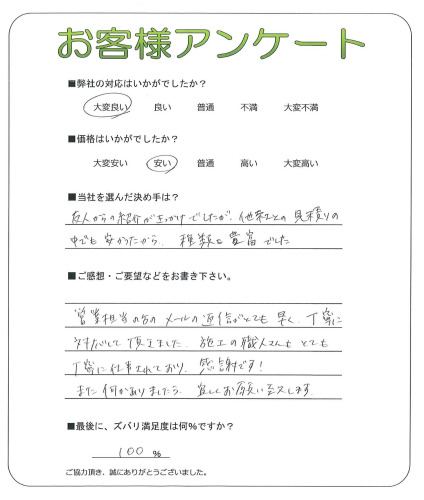 お客様アンケート
■弊社の対応はいかがでしたか？
大変良い 良い 普通 不満 大変不満
■価格はいかがでしたか？
大変安い 安い 普通 高い 大変高い
■当社を選んだ決め手は？
友人からの紹介がきっかけでしたが、他業社との見積りの
中でも安かったから。種類も豊富でした
■ご感想・ご要望などをお書き下さい。
営業担当の方のメールの返信がとても早く、丁寧に
対応して頂きました。施工の職人さんもとても
丁寧に仕事されており、感謝です！
また何かありましたら、宜しくお願い致します。
■最後に、ズバリ満足度は何%ですか？
100 %
ご協力頂き、誠にありがとうございました。